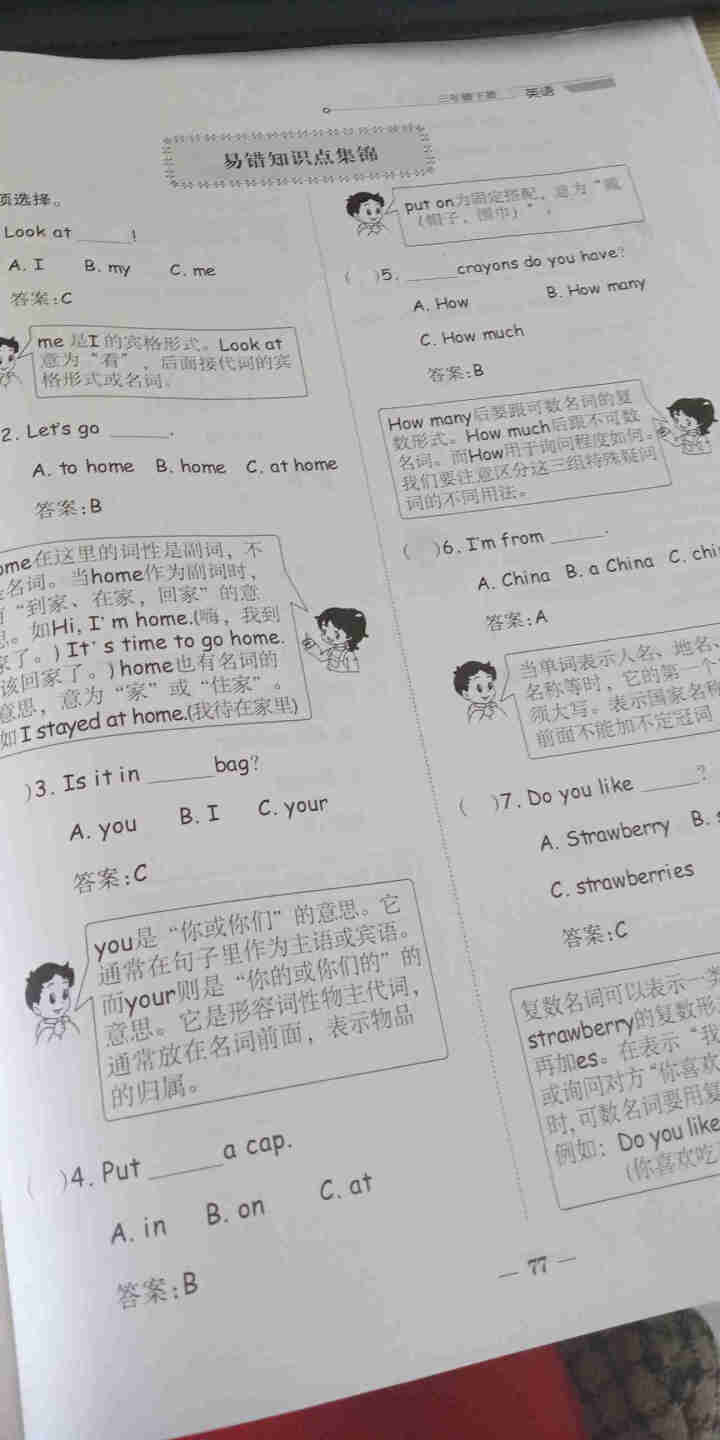 三年级下册 英语
易错知识点集锦
项选择。
Look at ______!
A. I B. my C. me
答案:C
me 是I的宾格形式。Look at
意为“看”，后面接代词的宾
格形式或名词。
2. Let's go ______.
A. to home B. home C. at home
答案:B
ome在这里的词性是副词，不
名词。当home作为副词时，
“到家、在家，回家”的意
。如Hi, I'm home.(嗨，我到
家了。) It's time to go home.
该回家了。) home也有名词的
意思，意为“家”或“住家”。
如I stayed at home.(我待在家里)
)3. Is it in ______ bag?
A. you B. I C. your
答案:C
you是“你或你们”的意思。它
通常在句子里作为主语或宾语。
而your则是“你的或你们的”的
意思。它是形容词性物主代词，
通常放在名词前面，表示物品
的归属。
( )4. Put ______ a cap.
A. in B. on C. at
答案:B
put on为固定搭配，意为“戴
（帽子、围巾）”。
( )5. ______ crayons do you have?
A. How B. How many
C. How much
答案:B
How many后要跟可数名词的复
数形式。How much后跟不可数
名词。而How用于询问程度如何。
我们要注意区分这三组特殊疑问
词的不同用法。
( )6. I'm from ______.
A. China B. a China C. chi
答案:A
当单词表示人名、地名、
名称等时，它的第一个
须大写。表示国家名称
前面不能加不定冠词
( )7. Do you like ______?
A. Strawberry B. s
C. strawberries
答案:C
复数名词可以表示一类
strawberry的复数形
再加es。在表示“我
或询问对方“你喜欢
时，可数名词要用复
例如：Do you like
(你喜欢吃
— 77 —